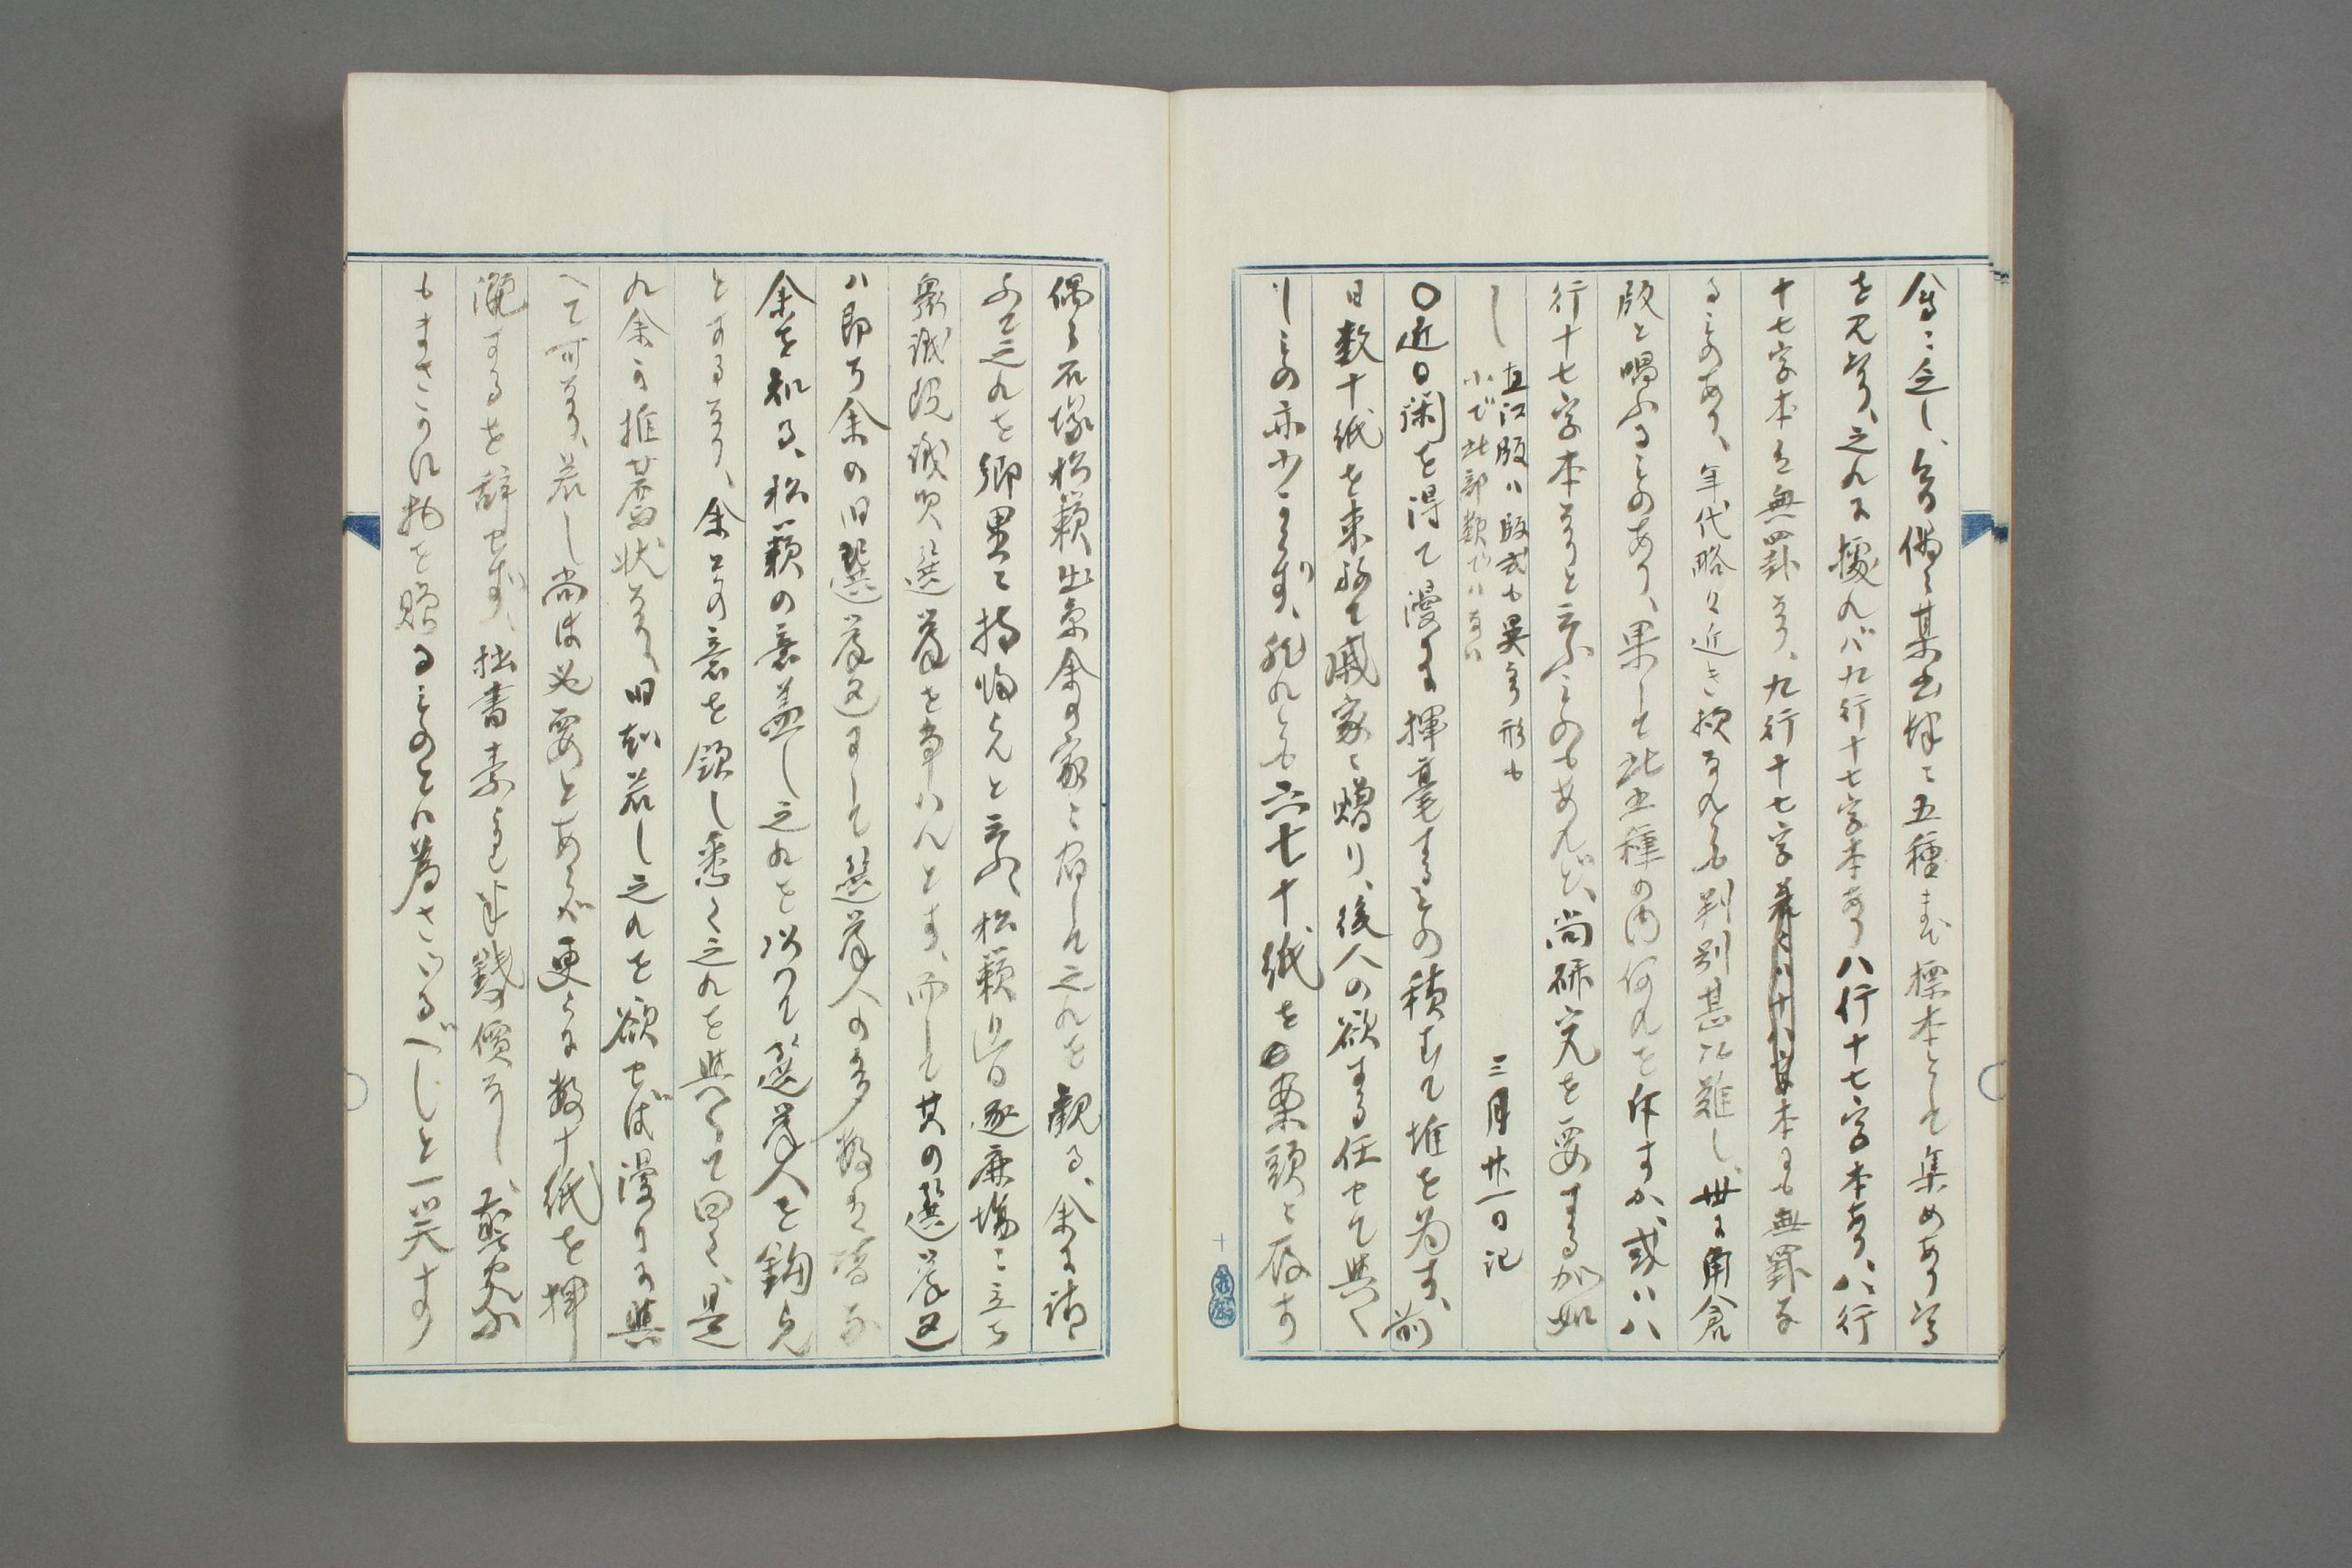 偶々某書肆に五種まで標本として集めあり
を見る、之れに拠れバ九行十七字本あり八行十七字本あり、八行
十七字本を無罫なり、九行十七字本にも無罫な
るものあり、年代略々近き換なれバ判別甚だ難し、世に角倉
版と唱ふるものあり、果して此五種の内何れを斥すか、或ハ八
行十七字本なりと云ふものもあれど、尚研究を要するが如
し 直江版ハ版式も異り形も
小で此部類でハない 三月廿一日記
〇近日閑を得て漫に揮毫するもの積むて堆を為す、前
日数十紙を束ねて戚家に贈り、後人の欲する任せて与へ
しもの亦少からず、然れども六七十紙を
偶々石塚松籟出京余の家に宿して之れを観る、余に請
ふて之れを郷里に持帰らんと云ふ、松籟此日逐鹿場に立ち
衆議院議員選挙を争ハんとす、而して其の選挙区
ハ即ち余の旧選挙区にして選挙人の多数を皆な
余を知る、松籟の意蓋し之れを以て選挙人を釣らん
とするなり、余その意を領し悉く之れを与へて曰く、是
れ余の推薦状なり、旧知若し之れを欲せば漫りに与
へて可なり、若し尚ほ必要とあらバ更らに数十紙を揮
灑するを辞せず、拙書素より半銭の價なし、
もまさかに物を贈るものとハ為さゞるべしと一笑す